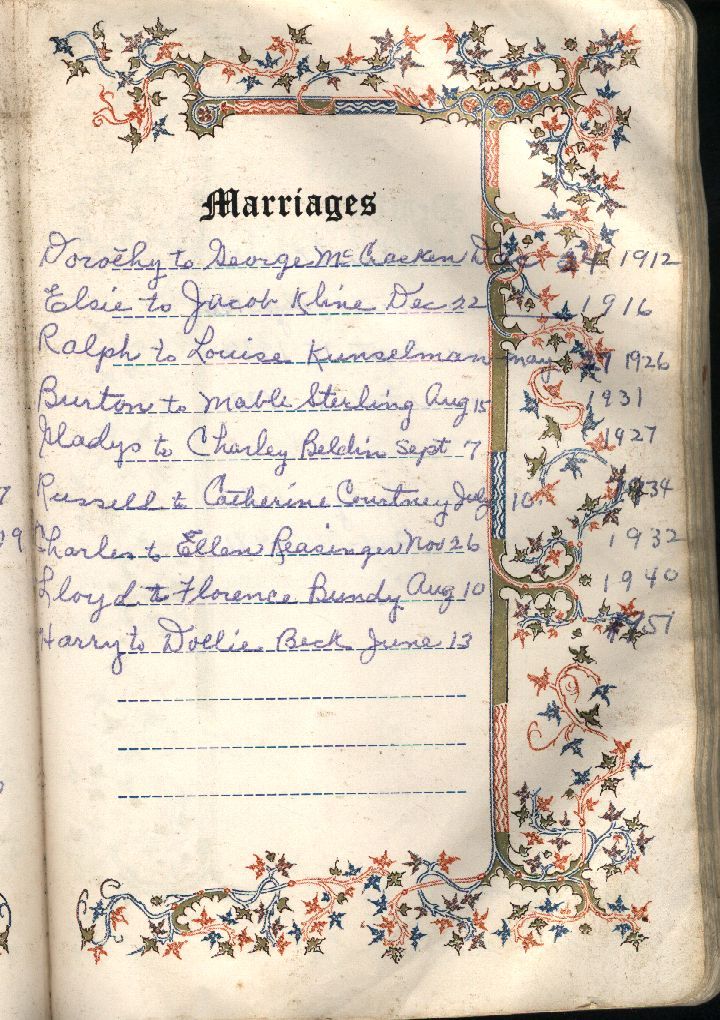 Marriages
Dorothy to George McCracken 24 1912
Elsie to Jacob Kline Dec 22 1916
Ralph to Louise Kunselman may 27 1926
Burton to Mable Sterling Aug 15 1931
Gladys to Charley Beldin Sept 7 1927
Russell to Catherine Courtney July 10 1934
Charles to Ellen Reasinger Nov 26 1932
Lloyd to Florence Bundy Aug 10 1940
Harry to Dollie Beck June 13 1951